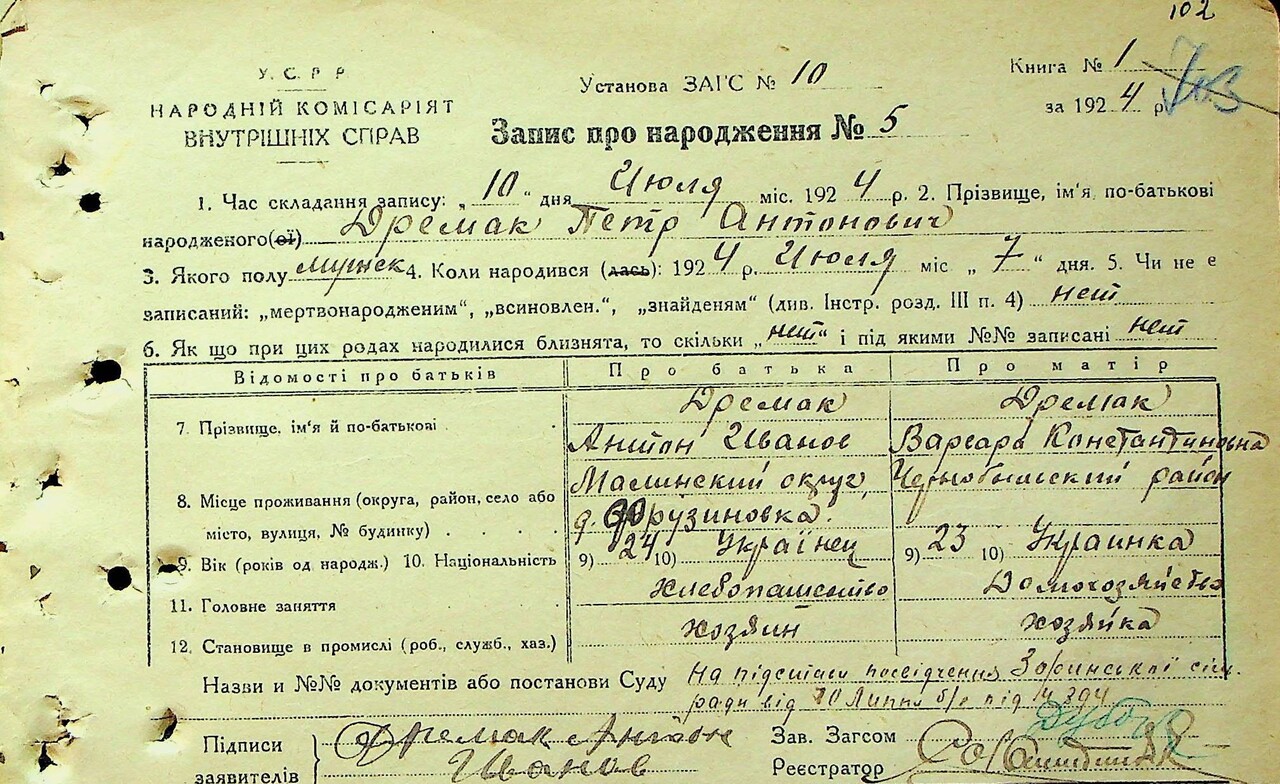 102
У. С. Р. Р.
НАРОДНІЙ КОМІСАРІЯТ
ВНУТРІШНІХ СПРАВ
Установа ЗАГС № 10
Книга № 1
за 1924 р.
Запис про народження № 5
1. Час складання запису: „10" дня Июля міс. 1924 р. 2. Прізвище, ім'я, по-батькові
народженого(ої) Дремак Петр Антонович
3. Якого полу мужск 4. Коли народився (лась): 1924 р. Июля міс „7" дня. 5. Чи не є
записаний: „мертвонародженим", „всиновлен.", „знайденям" (див. Інстр. розд. III п. 4) нет
6. Як що при цих родах народилися близнята, то скільки „нет" і під якими №№ записані нет
Відомості про батьків Про батька Про матір
Дремак Дремак
7. Прізвище, ім'я й по-батькові Антон Иванов Варвара Константиновна
Малинский округ, Чернобыльский район
8. Місце проживання (округа, район, село або
д. Грузиновка.
місто, вулиця, № будинку)
9. Вік (років од народж.) 10. Національність 9) 24 10) Українец 9) 23 10) Украинка
11. Головне заняття хлебопашество Домохозяйство
12. Становище в промислі (роб., служб., хаз.) хозяин хозяйка
Назви и №№ документів або постанови Суду На підставі посвідчення сіл.
ради від 10 Липня б/р під
Підписи
заявителів
Дремак Антон
Иванов
Зав. Загсом
Реєстратор